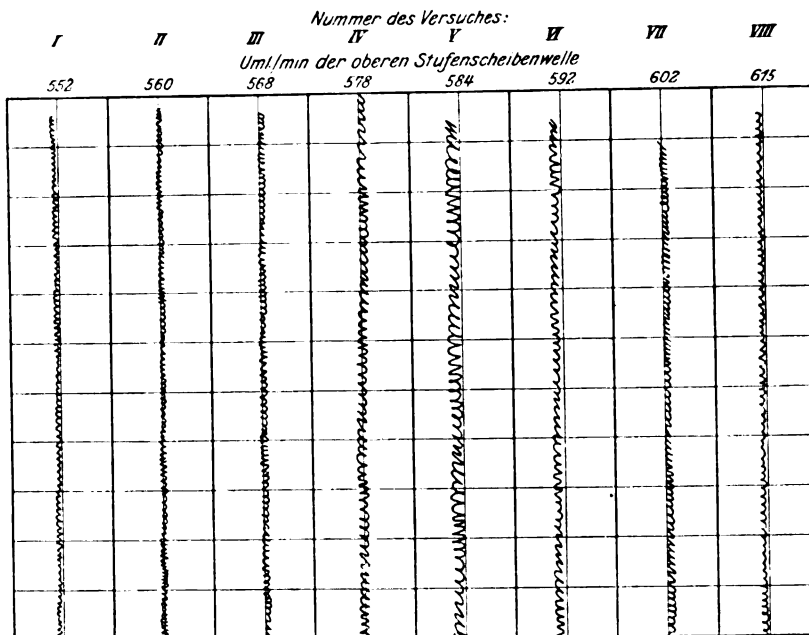 Nummer des Versuches:
I II III IV V VI VII VIII
Uml/min der oberen Stufenscheibenwelle
552 560 568 578 584 592 602 615